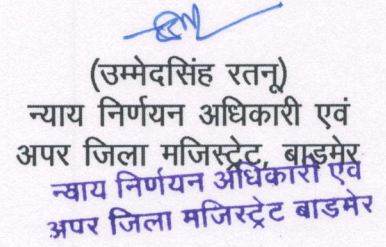 (उम्मेदसिंह रतनू)
न्याय निर्णयन अधिकारी एवं
अपर जिला मजिस्ट्रेट, बाडमेर
न्याय निर्णयन अधिकारी एवं
अपर जिला मजिस्ट्रेट बाडमेर